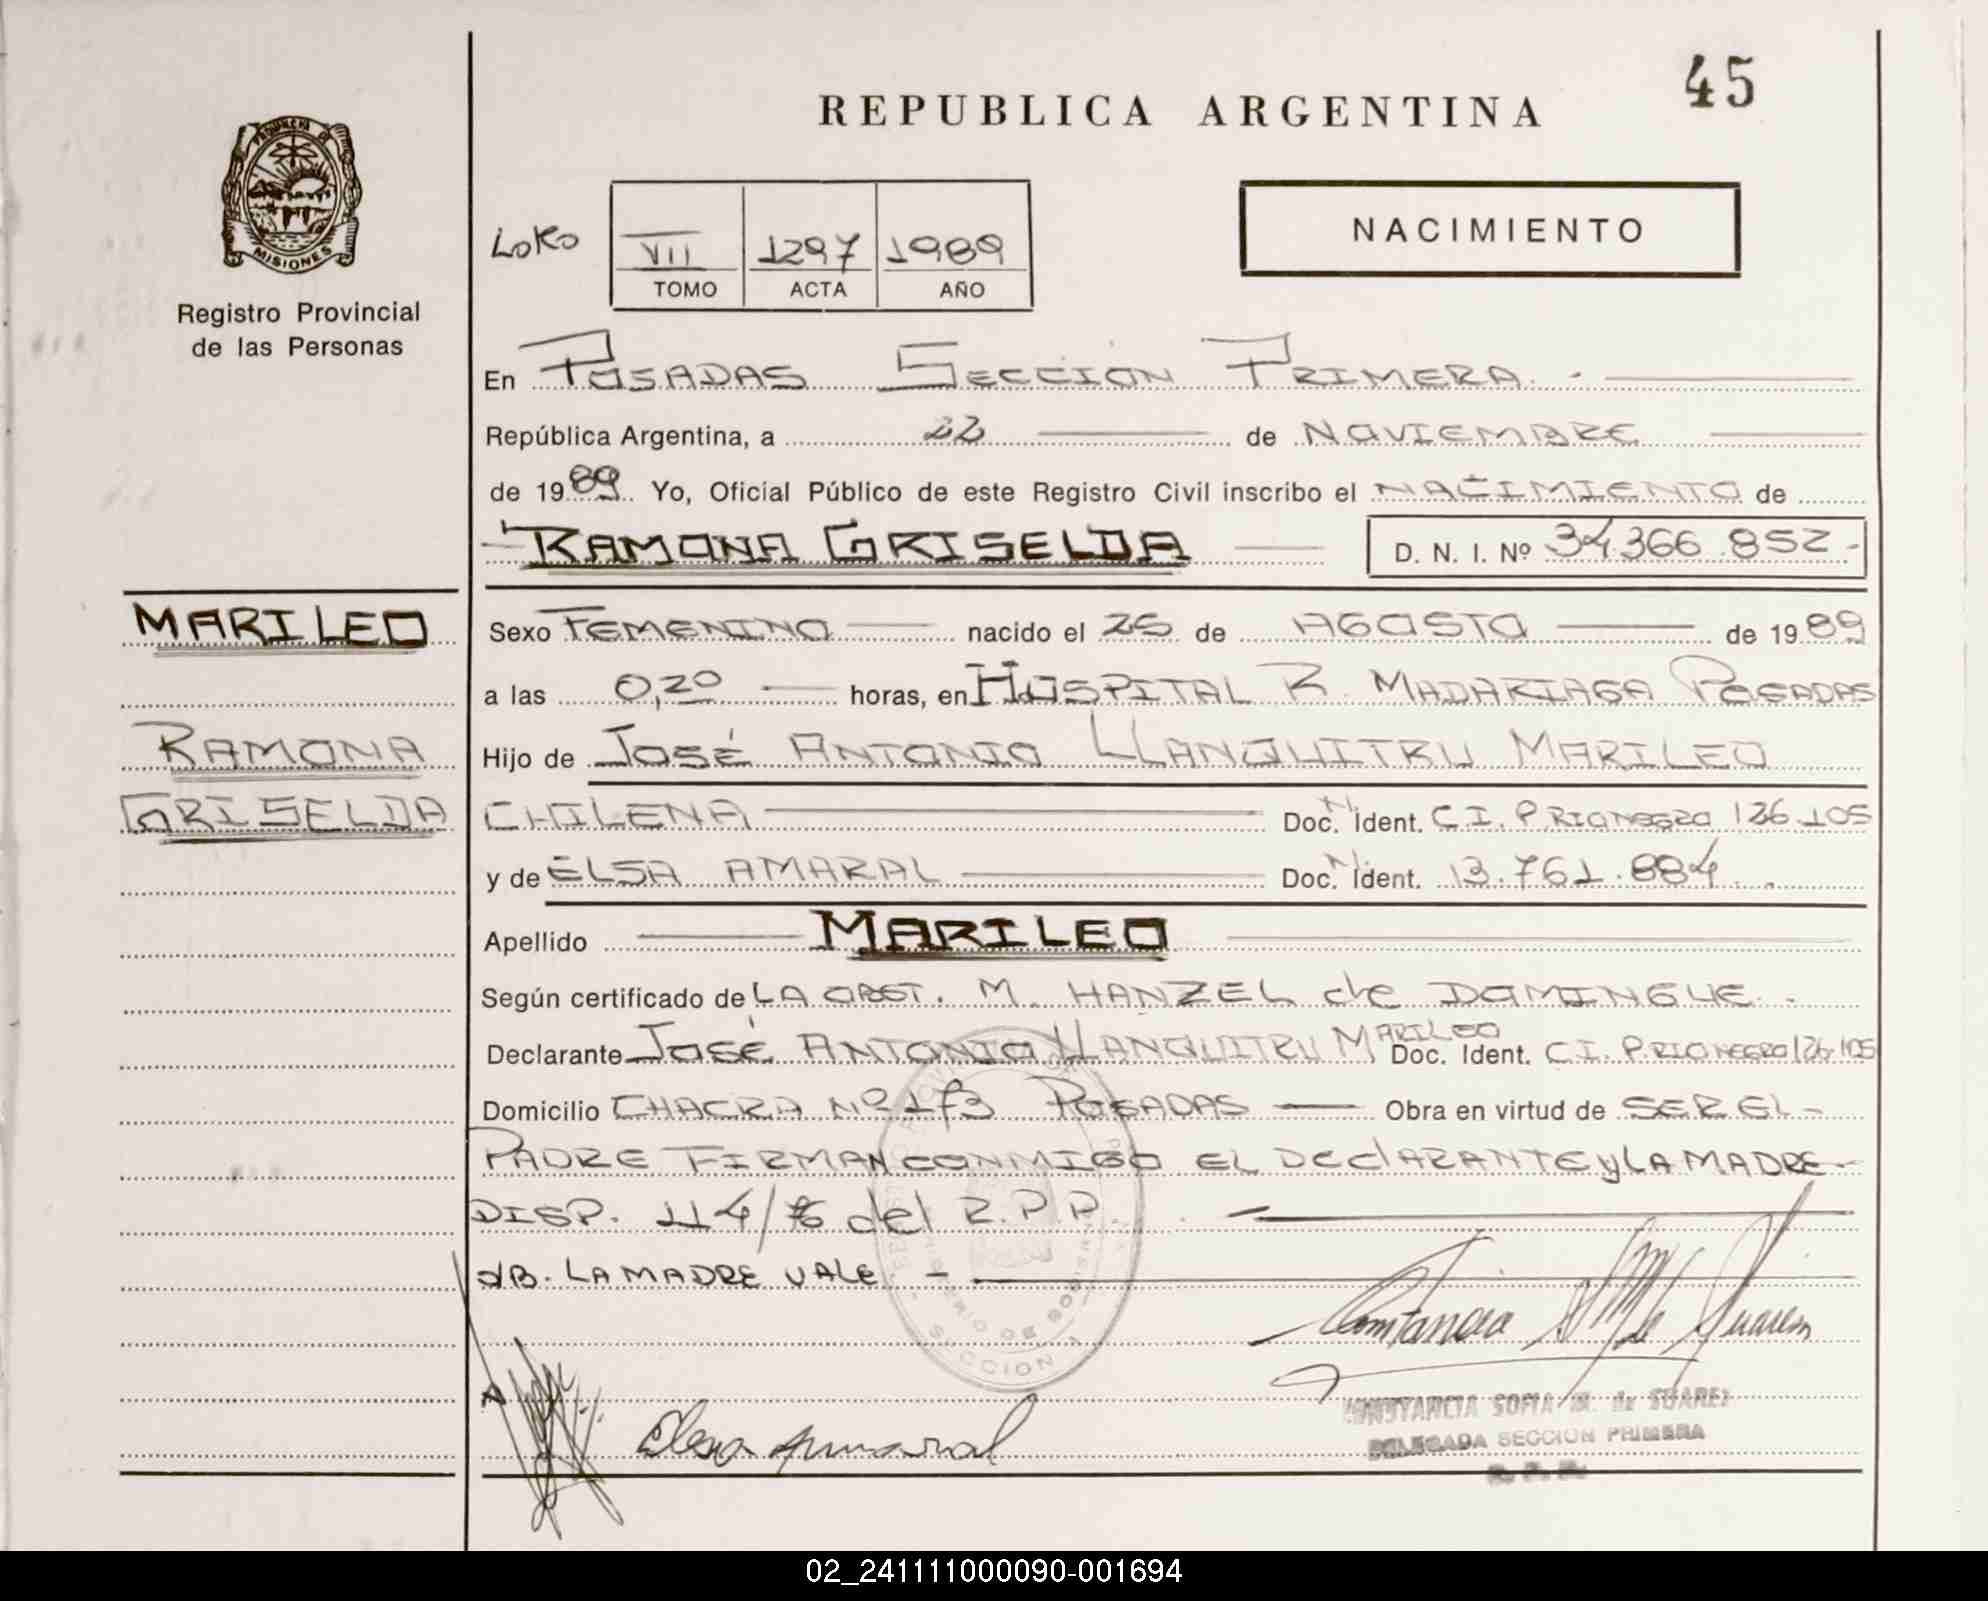 45
REPUBLICA ARGENTINA
PROVINCIA DE
MISIONES
Registro Provincial
de las Personas
VII 1297 1989
TOMO ACTA AÑO
NACIMIENTO
En POSADAS SECCION PRIMERA.-
República Argentina, a 22 de NOVIEMBRE
de 1989 Yo, Oficial Público de este Registro Civil inscribo el NACIMIENTO de
RAMONA GRISELDA D. N. I. Nº 34.366.852-
MARILEO
RAMONA
GRISELDA
Sexo FEMENINO nacido el 26 de AGOSTO de 1989
a las 0,20 horas, en HOSPITAL R. MADARIAGA POSADAS
Hijo de JOSÉ ANTONIO LLANQUITRU MARILEO
CHILENA Doc. Ident. C.I. P.RIONEGRO 126.105
y de ELSA AMARAL Doc. Ident. 13.761.884.
Apellido MARILEO
Según certificado de LA OBST. M. HANZEL de DOMINGUE.
Declarante JOSÉ ANTONIO LLANQUITRU MARILEO Doc. Ident. C.I. P.RIONEGRO 126.105
Domicilio CHACRA Nº 173 POSADAS Obra en virtud de SER EL-
PADRE FIRMAN CONMIGO EL DECLARANTE y LA MADRE-
DISP. 114/ del R.P.P.
LA MADRE VALE -
SECCION 1
Constancia de Suarez
CONSTANCIA SOFIA M. de SUAREZ
DELEGADA SECCION PRIMERA
R. P. P.
Elsa Amaral
02_241111000090-001694